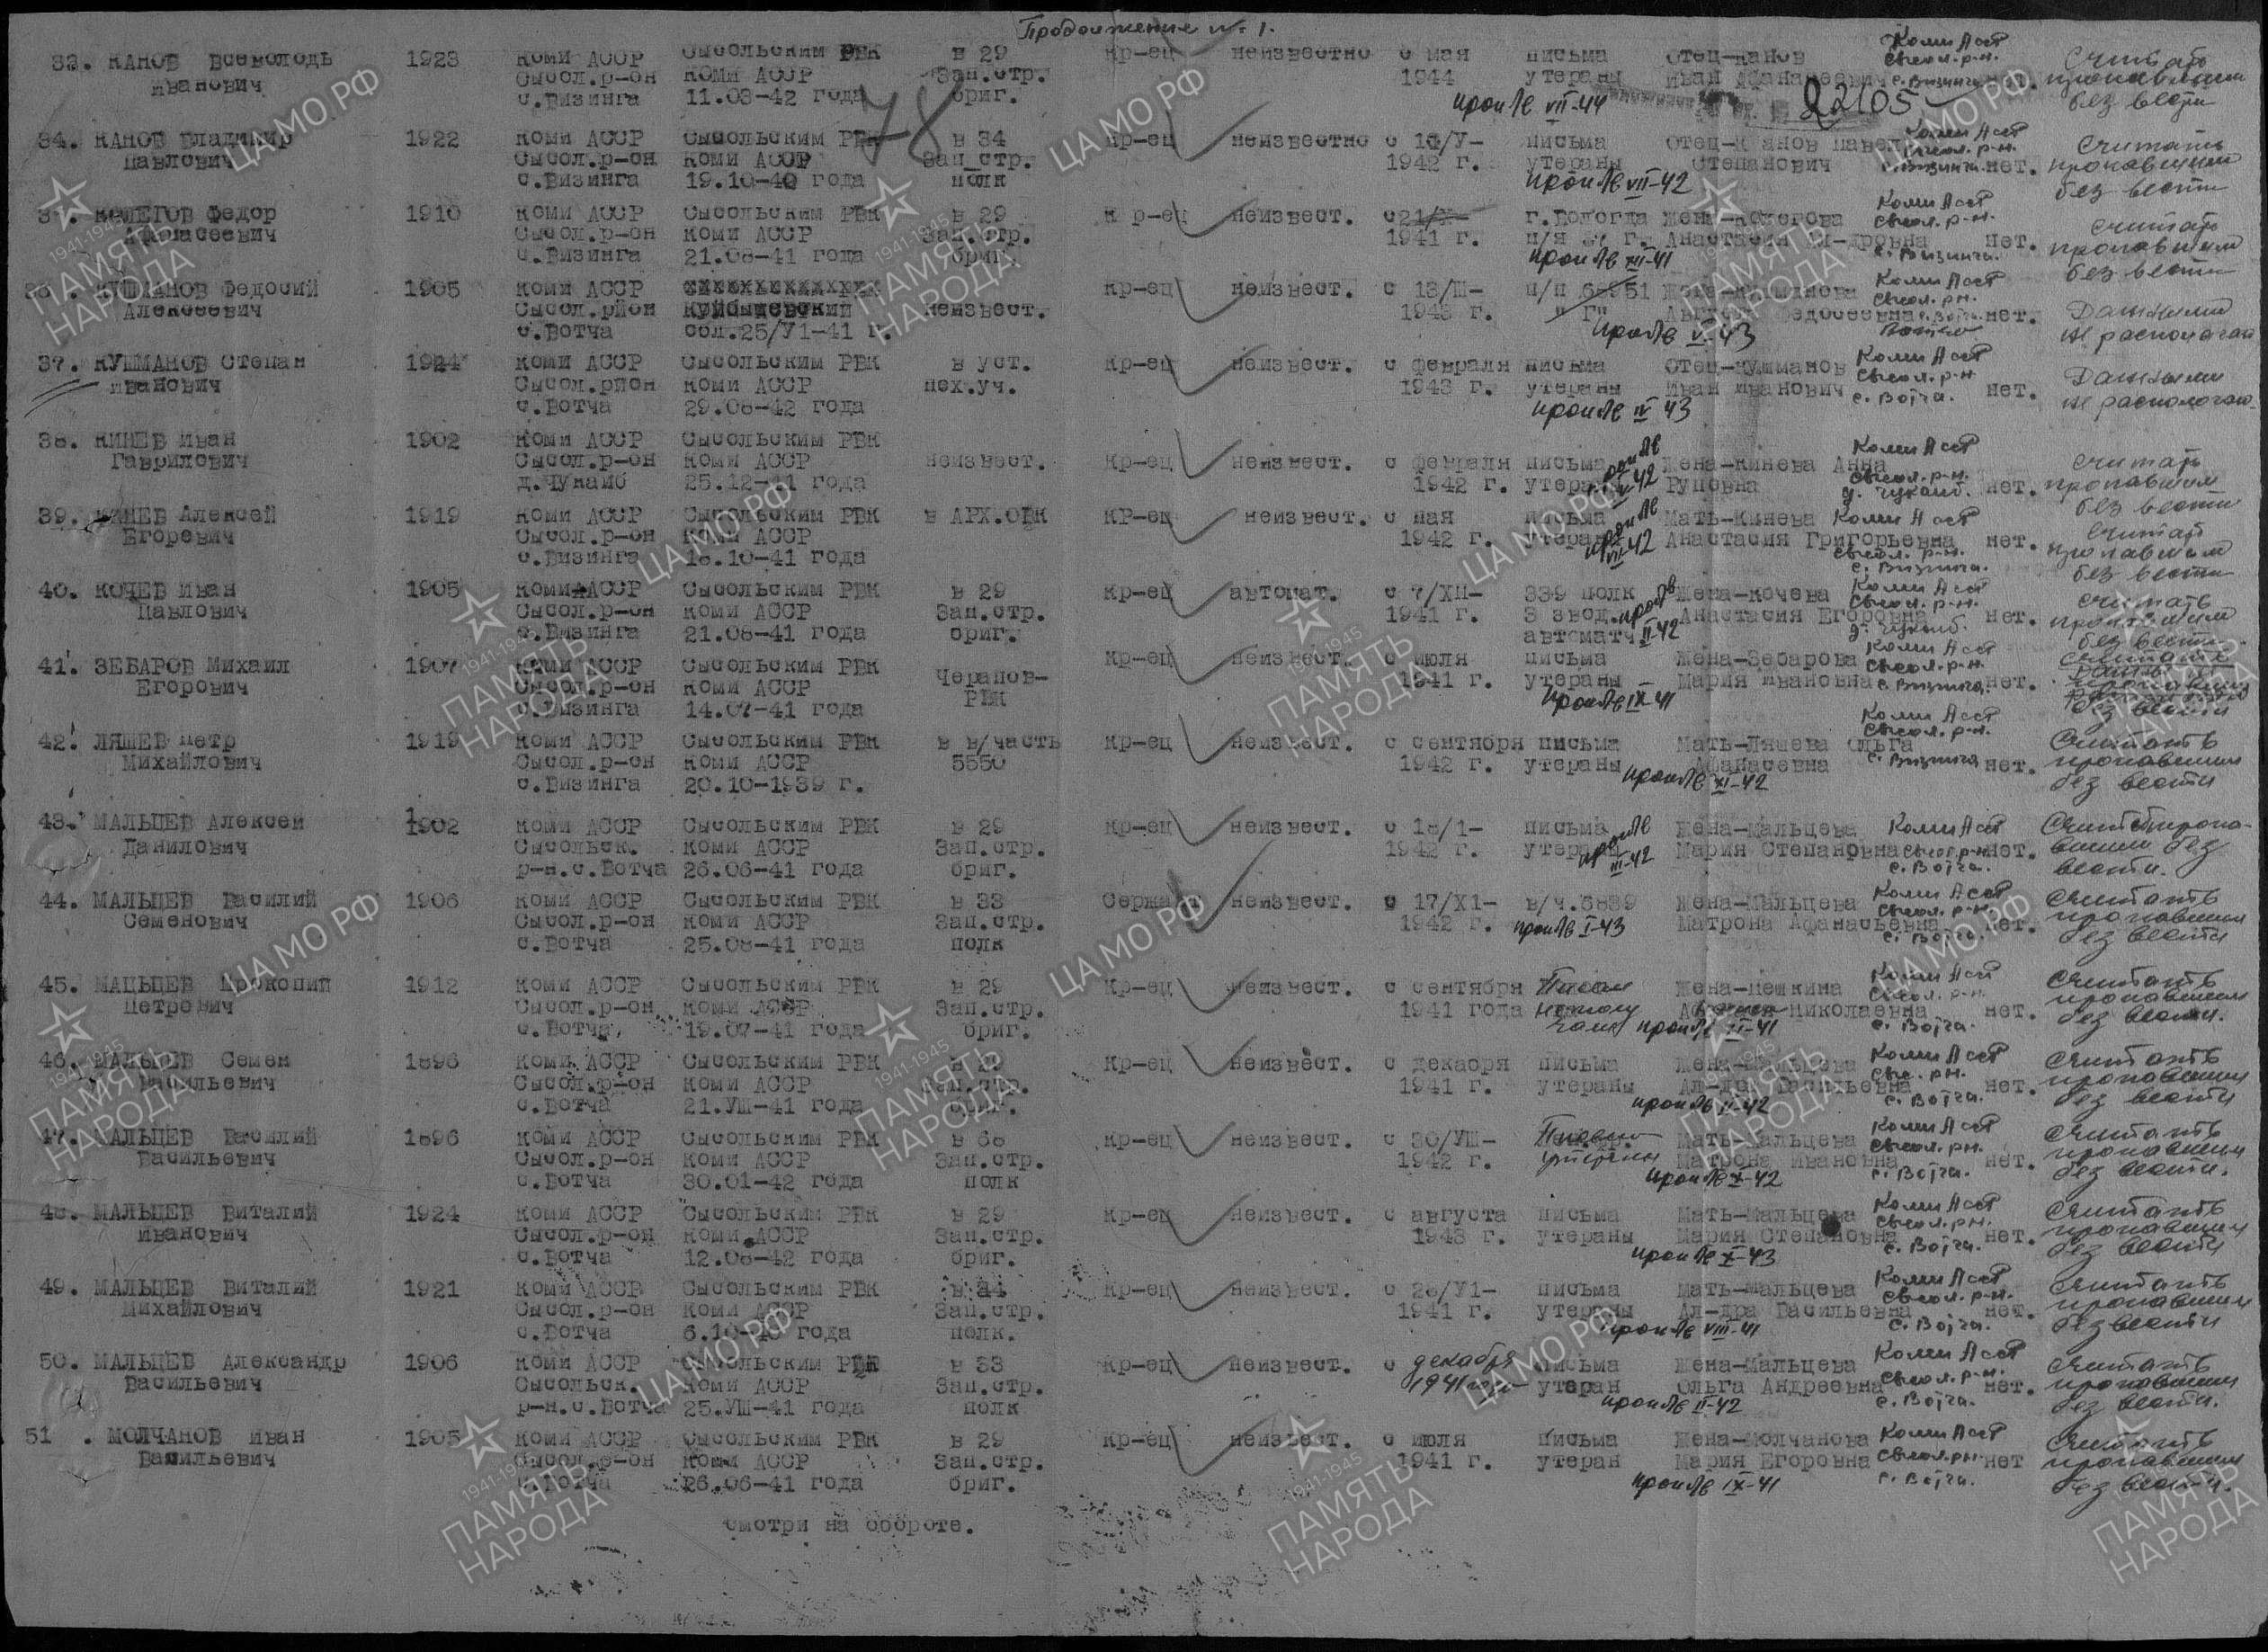 Продолжение № 1.
33. КАНОВ Всеволодь 1923 Коми АССР Сысольским РВК в 29 Кр-ец неизвестно с мая письма Отец-Канов Коми Асст Считать
Иванович Сысол.р-он Коми АССР Зап.стр. 1944 утераны Иван Афанасеевич с. Визинга нет. пропавшим
с.Визинга 11.03-42 года бриг. проп Ав VII-44 22105 без вести
78
34. КАНОВ Владимир 1922 Коми АССР Сысольским РВК в 34 Кр-ец неизвестно с 18/У- письма Отец-Канов Павел Коми Асст Считать
Павлович Сысол.р-он Коми АССР Зап стр. 1942 г. утераны Степанович с. Визинга нет. пропавшим
с.Визинга 19.10-40 года полк проп Ав VII-42 без вести
35. КОЛЕГОВ Федор 1910 Коми АССР Сысольским РВК в 29 К р-ец неизвест. с 21/Х- г.Вологда Жена- Коми Асст Считать
Афанасеевич Сысол.р-он Коми АССР Зап.стр. 1941 г. п/я Анастасия Ал-дровна нет. пропавшим
с.Визинга 21.08-41 года бриг. проп Ав XII-41 с. Визинга. без вести
36. КУШМАНОВ Федосий 1905 Коми АССР Кр-ец неизвест. с 13/Ш- п/п Жена-Кушманова Коми Асст
Алексеевич Сысол.рйон Куйбышевский неизвест. 1943 г. "Г" Федосеевна нет. Данными
с.Вотча обл.25/У1-41 г. проп Ав V-43 не располагаю
37. КУШМАНОВ Степан 1924 Коми АССР Сысольским РВК в уст. Кр-ец неизвест. с февраля письма Отец-Кушманов Коми Асст
Иванович Сысол.рйон Коми АССР пех.уч. 1943 г. утераны Иван Иванович нет. Данными
с.Вотча 29.08-42 года проп Ав IV 43 с. Вотча. не располагаю
38. КИНЕВ Иван 1902 Коми АССР Сысольским РВК Коми Асст
Гаврилович Сысол.р-он Коми АССР неизвест. Кр-ец неизвест. с февраля письма Жена-Кинева Анна Считать
д.Чукаиб 25.12-41 года 1942 г. утераны д. Чукаиб. нет. пропавшим
без вести
39. КИНЕВ Алексей 1919 Коми АССР Сысольским РВК в АРХ.ОВК Кр-ец неизвест. с мая письма Мать-Кинева Коми Асст Считать
Егоревич Сысол.р-он Коми АССР 1942 г. утераны Анастасия Григорьевна нет. пропавшим
с.Визинга 18.10-41 года VII-42 с. Визинга. без вести
40. КОЧЕВ Иван 1905 Коми АССР Сысольским РВК в 29 Кр-ец автомат. с 7/ХП- 339 полк Жена-Кочева Коми Асст Считать
Павлович Сысол.р-он Коми АССР Зап.стр. 1941 г. 3 звод. Анастасия Егоровна нет. пропавшим
с.Визинга 21.08-41 года бриг. автоматч. II-42 д. Чукаиб. без вести
41. ЗЕБАРОВ Михаил 1907 Коми АССР Сысольским РВК Кр-ец неизвест. с июля письма Жена-Зебарова Коми Асст Считать
Егорович Сысол.р-он Коми АССР Черапов- 1941 г. утераны Мария Ивановна с. Визинга нет. пропавшим
с.Визинга 14.07-41 года РВК проп Ав IX-41 без вести
42. ЛЯШЕВ Петр 1919 Коми АССР Сысольским РВК в в/часть Кр-ец неизвест. с сентября письма Мать-Ляшева Ольга Коми Асст Считать
Михайлович Сысол.р-он Коми АССР 5550 1942 г. утераны Афанасевна с. Визинга нет. пропавшим
с.Визинга 20.10-1939 г. проп Ав XI-42 без вести
43. МАЛЬЦЕВ Алексей 1902 Коми АССР Сысольским РВК в 29 Кр-ец неизвест. с 18/1- письма Жена-Мальцева Коми Асст Считать пропа-
Данилович Сысольск. Коми АССР Зап.стр. 1942 г. утераны Мария Степановна нет. вшим без
р-н.с.Вотча 26.06-41 года бриг. III-42 с. Вотча. вести.
44. МАЛЬЦЕВ Василий 1906 Коми АССР Сысольским РВК в 33 Сержант неизвест. с 17/Х1- в/ч.5839 Жена-Мальцева Коми Асст Считать
Семенович Сысол.р-он Коми АССР Зап.стр. 1942 г. проп Ав I-43 Матрона Афанасьевна нет. пропавшим
с.Вотча 25.08-41 года полк с. Вотча. без вести
45. МАЦЬЦЕВ Прокопий 1912 Коми АССР Сысольским РВК в 29 Кр-ец неизвест. с сентября Писем Жена-Пешкина Коми Асст Считать
Петрович Сысол.р-он Коми АССР Зап.стр. 1941 года Николаевна нет. пропавшим
с.Вотча, 19.07-41 года бриг. проп Ав XI-41 с. Вотча. без вести.
46. МАЛЬЦЕВ Семен 1896 Коми АССР Сысольским РВК в 29 Кр-ец неизвест. с декабря письма Жена-Мальцева Коми Асст Считать
Васильевич Сысол.р-он Коми АССР Зап.стр. 1941 г. утераны Ал-дра Васильевна нет. пропавшим
с.Вотча 21.УШ-41 года бриг. проп Ав II-42 с. Вотча. без вести
47. МАЛЬЦЕВ Василий 1896 Коми АССР Сысольским РВК в 68 Кр-ец неизвест. с 30/УШ- Письмо Мать-Мальцева Коми Асст Считать
Васильевич Сысол.р-он Коми АССР Зап.стр. 1942 г. утеряны Матрона Ивановна нет. пропавшим
с.Вотча 30.01-42 года полк проп Ав X-42 с. Вотча. без вести.
48. МАЛЬЦЕВ Виталий 1924 Коми АССР Сысольским РВК в 29 Кр-ец неизвест. с августа письма Мать-Мальцева Коми Асст Считать
Иванович Сысол.р-он Коми АССР Зап.стр. 1943 г. утераны Мария Степановна нет. пропавшим
с.Вотча 12.08-42 года бриг. проп Ав X-43 с. Вотча. без вести
49. МАЛЬЦЕВ Виталий 1921 Коми АССР Сысольским РВК в 44 Кр-ец неизвест. с 28/У1- письма Мать-Мальцева Коми Асст Считать
Михайлович Сысол.р-он Коми АССР Зап.стр. 1941 г. утераны Ал-дра Васильевна нет. пропавшим
с.Вотча 6.10-40 года полк. проп Ав VIII-41 с. Вотча. без вести
50. МАЛЬЦЕВ Александр 1906 Коми АССР Сысольским РВК в 33 Кр-ец неизвест. с декабря письма Жена-Мальцева Коми Асст Считать
Васильевич Сысольск. Коми АССР Зап.стр. 1941 года утеран Ольга Андреевна нет. пропавшим
р-н.с.Вотча 25.УШ-41 года полк проп Ав II-42 с. Вотча. без вести.
51 . МОЛЧАНОВ Иван 1905 Коми АССР Сысольским РВК в 29 Кр-ец неизвест. с июля письма Жена-Молчанова Коми Асст Считать
Васильевич Сысол.р-он Коми АССР Зап.стр. 1941 г. утеран Мария Егоровна нет пропавшим
с.Вотча 26.06-41 года бриг. проп Ав IX-41 с. Вотча. без вести.
Смотри на обороте.
ЦА МО РФ
1941-1945
ПАМЯТЬ
НАРОДА